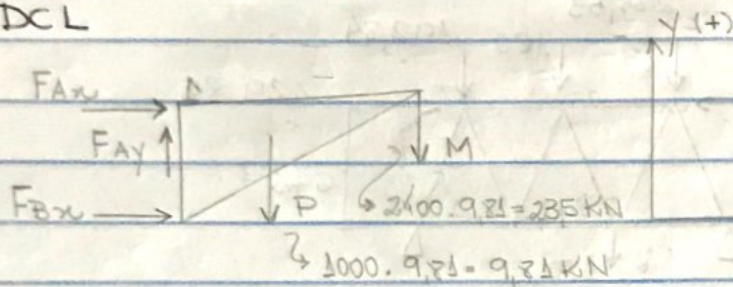 DCL
y (+)
FAx
A
FAy
M
FBx
P
2400.9,81=235KN
1000.9,81=9,81KN